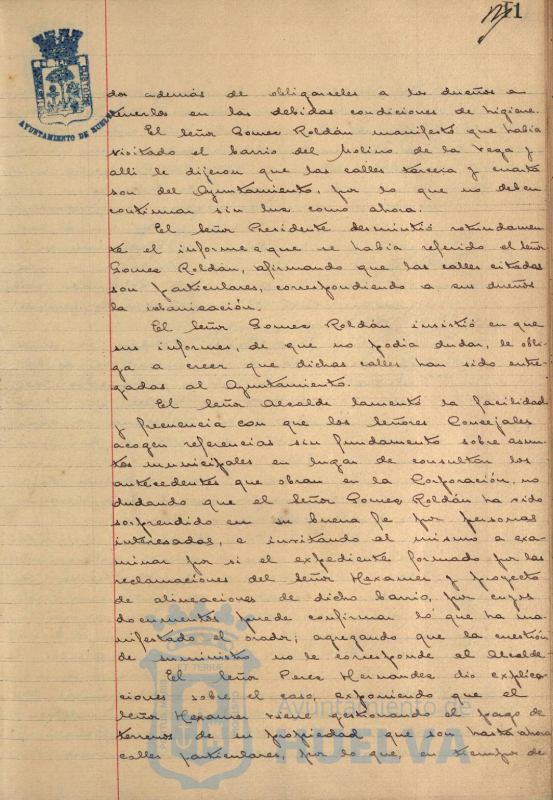 11
AYUNTAMIENTO DE HUELVA
dos además de obligarseles a los dueños a
tenerlos en las debidas condiciones de higiene.
El Señor Gomez Roldán manifestó que había
visitado el barrio del Molino de la Vega y
alli le dijeron que las calles tercera y cuarta
son del Ayuntamiento, por lo que no deben
continuar sin luz como ahora.
El Señor Presidente desmintió rotundamen-
te el informe a que se había referido el Señor
Gomez Roldán, afirmando que las calles citadas
son particulares, correspondiendo a sus dueños
la urbanización.
El Señor Gomez Roldán insistió en que
sus informes, de que no podia dudar, le obli-
ga a creer que dichas calles han sido entre-
gadas al Ayuntamiento.
El Señor Alcalde lamentó la facilidad
y frecuencia con que los Señores Concejales
acogen referencias sin fundamento sobre asun-
tos municipales en lugar de consultar los
antecedentes que obran en la Corporación, no
dudando que el Señor Gomez Roldán ha sido
sorprendido en su buena fe por personas
interesadas, e invitando al mismo a exa-
minar por si el expediente formado por las
reclamaciones del Señor Hexamer y proyecto
de alineaciones de dicho barrio, por cuyos
documentos puede confirmar lo que ha ma-
nifestado el orador; agregando que la cuestión
de suministro no le corresponde al Alcalde.
El Señor Perez Hernandez dio explica-
ciones sobre el caso, exponiendo que el
Señor Hexamer viene gestionando el pago de
terrenos de su propiedad que son hasta ahora
calles particulares, por lo que, en tiempos de
Ayuntamiento de
HUELVA